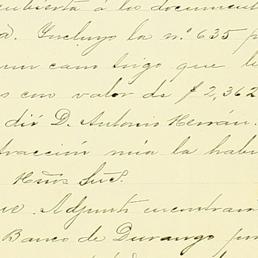 cubierta á los document
a). Incluyo la nº 635 p
un cam tngo que l
s con valor de $ 2,362
dió D. Antonio Herrán.
tracción mia la hab
Hños Sucs.
ve. Adjunto encontram
Banco de Durango por